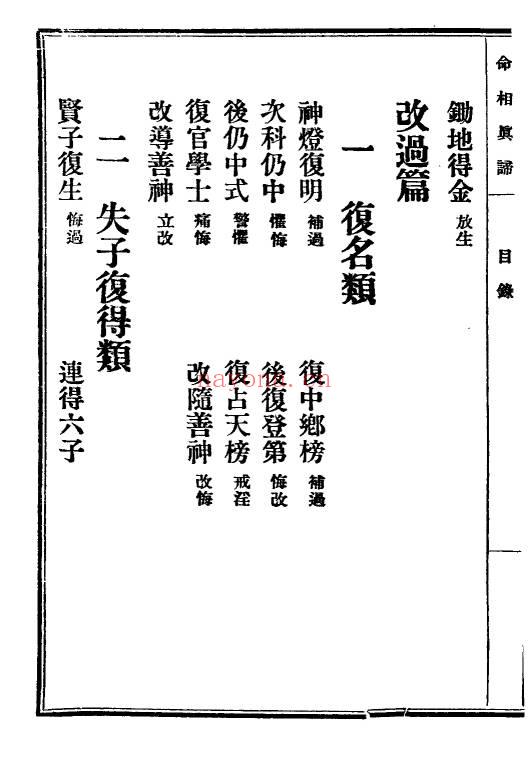 命相眞諦 目錄
鋤地得金 放生
改過篇
一 復名類
神燈復明 補過 復中鄉榜 補過
次科仍中 懼悔 後復登第 悔改
後仍中式 警懼 復占天榜 戒淫
復官學士 痛悔 改隨善神 改悔
改導善神 立改
二 失子復得類
賢子復生 悔過 連得六子
nayona.cn